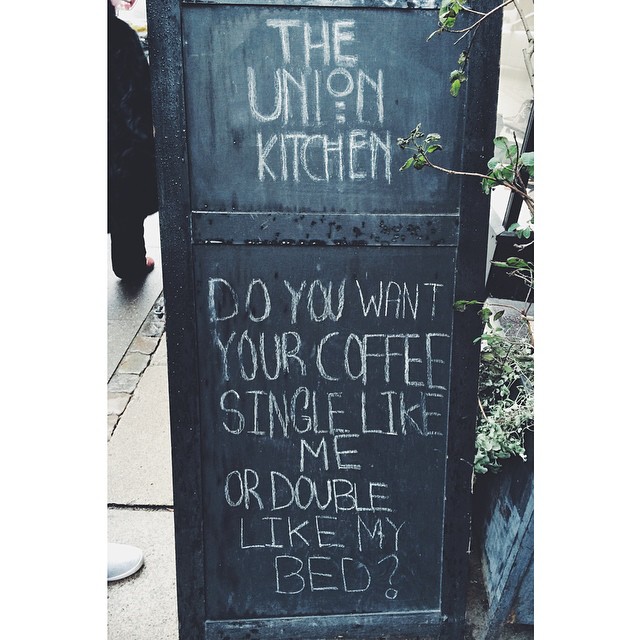 THE
UNION
KITCHEN
DO YOU WANT
YOUR COFFEE
SINGLE LIKE
ME
OR DOUBLE
LIKE MY
BED?